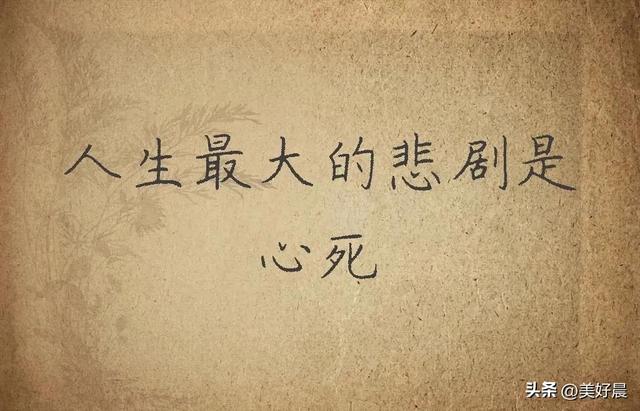 人生最大的悲剧是
心死
头条 @美好晨